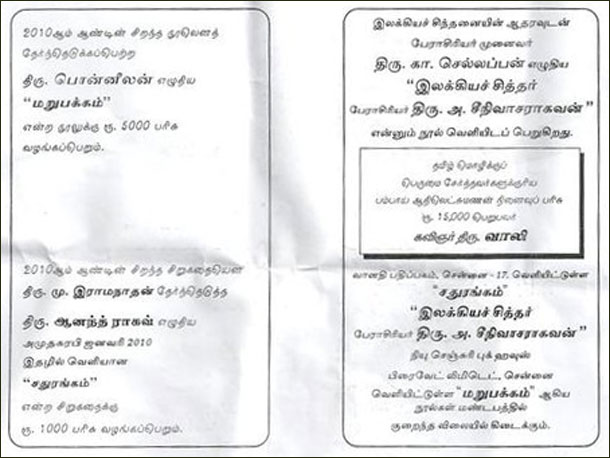 2010ஆம் ஆண்டின் சிறந்த நூலெனத்
தேர்ந்தெடுக்கப்பெற்ற
திரு. பொன்னீலன் எழுதிய
“மறுபக்கம்”
என்ற நூலுக்கு ரூ. 5000 பரிசு
வழங்கப்பெறும்.
2010ஆம் ஆண்டின் சிறந்த சிறுகதையென
திரு. மு. இராமநாதன் தேர்ந்தெடுத்த
திரு. ஆனந்த் ராகவ் எழுதிய
அமுதசுரபி ஜனவரி 2010
இதழில் வெளியான
“சதுரங்கம்”
என்ற சிறுகதைக்கு
ரூ. 1000 பரிசு வழங்கப்பெறும்.
இலக்கியச் சிந்தனையின் ஆதரவுடன்
பேராசிரியர் முனைவர்
திரு. கா. செல்லப்பன் எழுதிய
“இலக்கியச் சித்தர்
பேராசிரியர் திரு. அ. சீநிவாசராகவன்”
என்னும் நூல் வெளியிடப் பெறுகிறது.
தமிழ் மொழிக்குப்
பெருமை சேர்த்தவர்களுக்குரிய
பம்பாய் ஆதிலெட்சுமணன் நினைவுப் பரிசு
ரூ. 15,000 பெறுபவர்
கவிஞர் திரு. வாலி
வானதி பதிப்பகம், சென்னை - 17. வெளியிட்டுள்ள
“சதுரங்கம்”
“இலக்கியச் சித்தர்
பேராசிரியர் திரு. அ. சீநிவாசராகவன்”
நியு செஞ்சுரி புக் ஹவுஸ்
பிரைவேட் லிமிடெட், சென்னை
வெளியிட்டுள்ள “மறுபக்கம்” ஆகிய
நூல்கள் மண்டபத்தில்
குறைந்த விலையில் கிடைக்கும்.